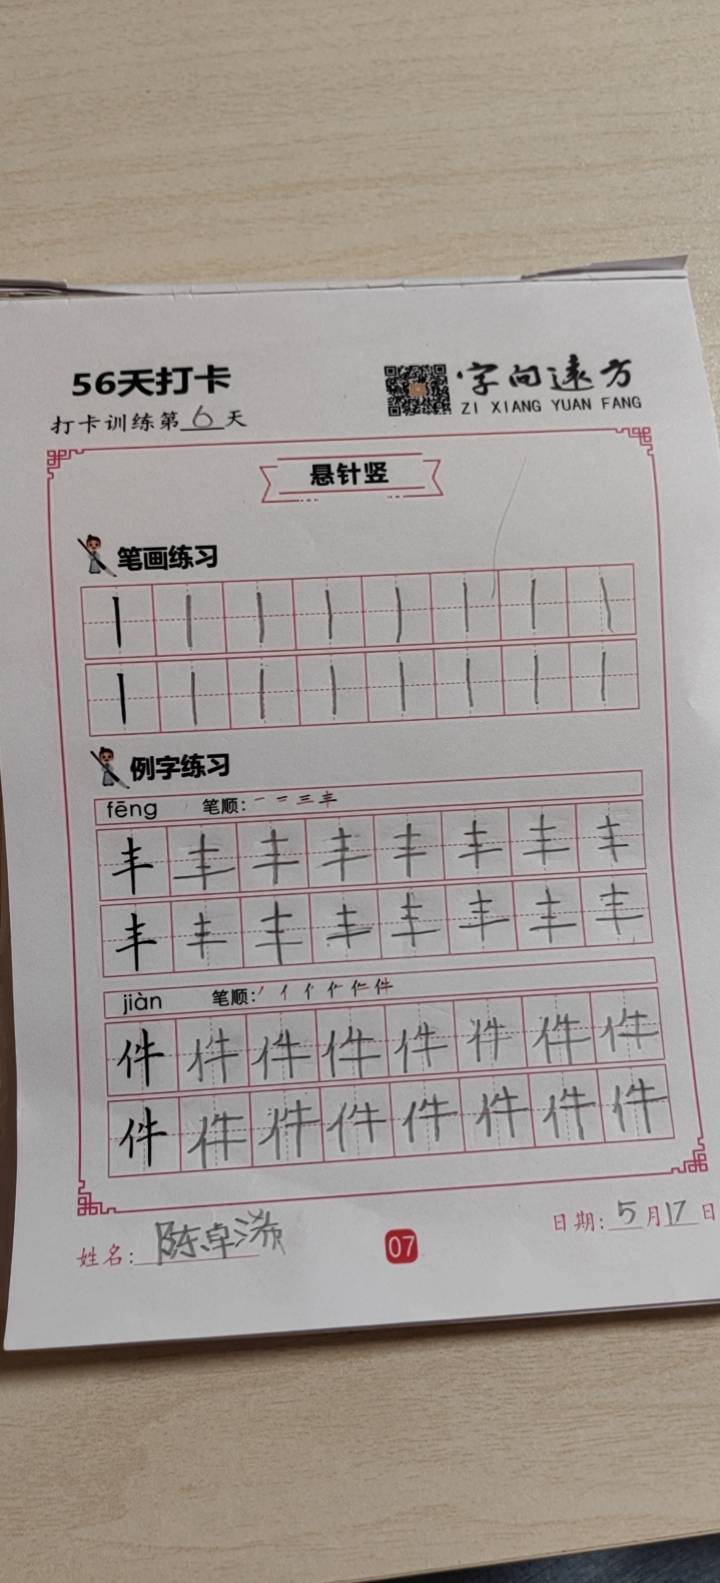 56天打卡
字向远方
ZI XIANG YUAN FANG
打卡训练第6天
悬针竖
笔画练习
丨丨丨丨丨丨丨丨
丨丨丨丨丨丨丨丨
例字练习
fēng 笔顺: 一 二 三 丰
丰丰丰丰丰丰丰丰
丰丰丰丰丰丰丰丰
jiàn 笔顺:
件件件件件件件件
件件件件件件件件
姓名: 陈卓
07
日期: 5月17日